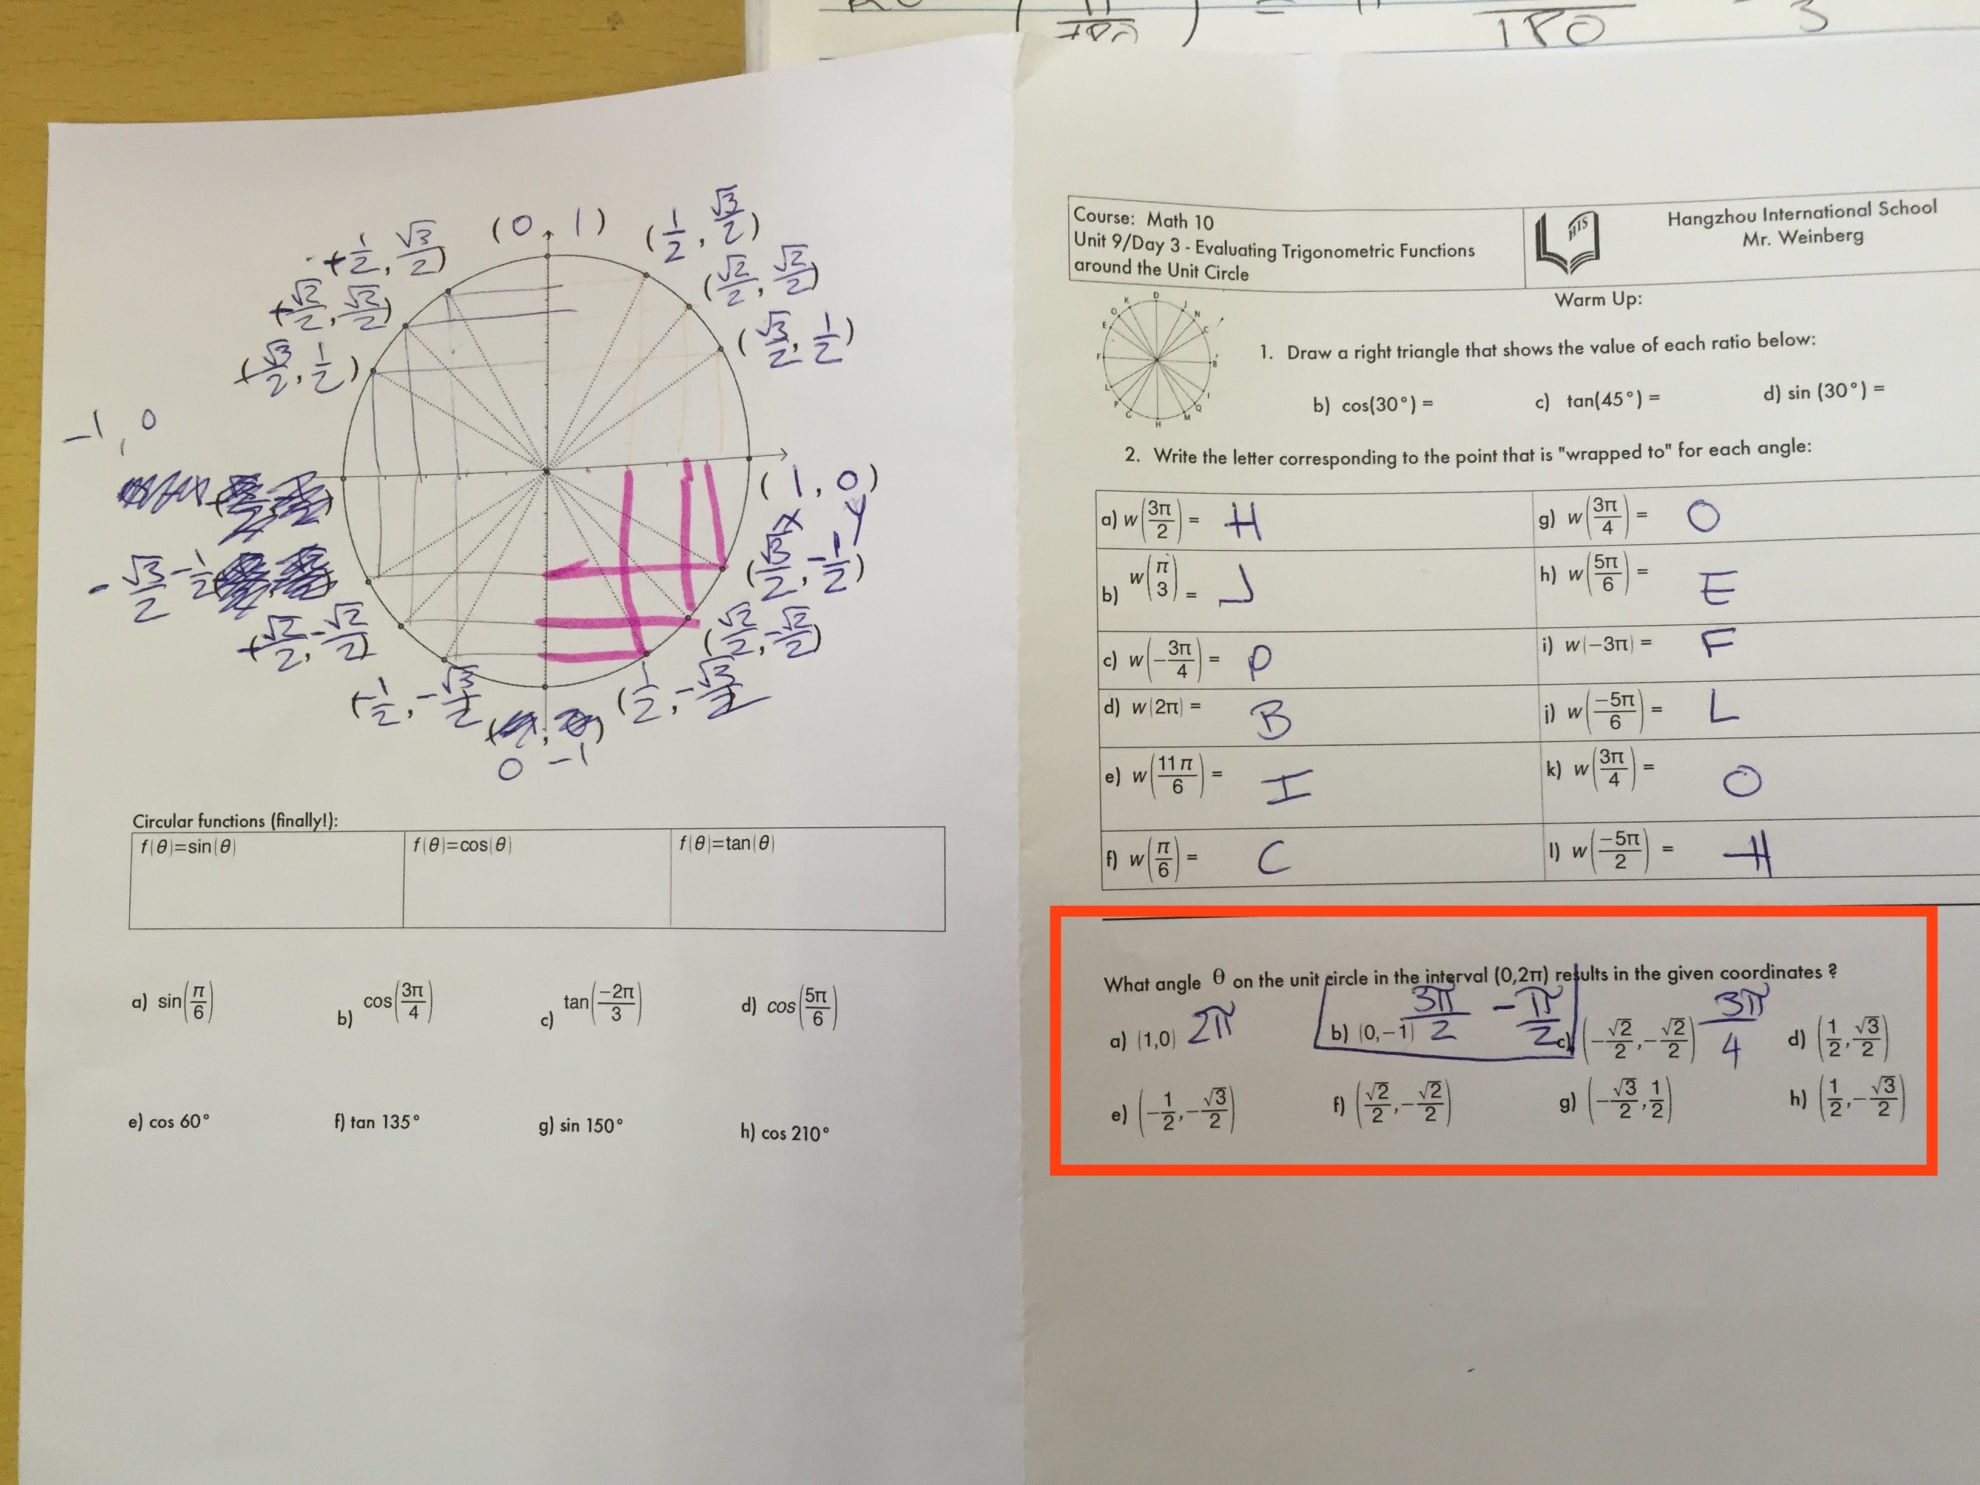 180
180
3
(0, 1)
(1/2, √3/2)
(√2/2, √2/2)
(√3/2, 1/2)
-1/2, √3/2)
-√2/2, √2/2)
-√3/2, 1/2)
-1, 0
(1, 0)
x y
(√3/2, -1/2)
(√2/2, -√2/2)
(1/2, -√3/2)
-√3/2 -1/2
-√2/2, -√2/2)
(-1/2, -√3/2
0 -1
Circular functions (finally!):
f(θ)=sin(θ) f(θ)=cos(θ) f(θ)=tan(θ)
a) sin(π/6) b) cos(3π/4) c) tan(-2π/3) d) cos(5π/6)
e) cos 60° f) tan 135° g) sin 150° h) cos 210°
Course: Math 10
Unit 9/Day 3 - Evaluating Trigonometric Functions
around the Unit Circle
HIS
Hangzhou International School
Mr. Weinberg
Warm Up:
1. Draw a right triangle that shows the value of each ratio below:
b) cos(30°) = c) tan(45°) = d) sin (30°) =
2. Write the letter corresponding to the point that is "wrapped to" for each angle:
a) w(3π/2) = H g) w(3π/4) = O
b) w(π/3) = J h) w(5π/6) = E
c) w(-3π/4) = P i) w(-3π) = F
d) w(2π) = B j) w(-5π/6) = L
e) w(11π/6) = I k) w(3π/4) = O
f) w(π/6) = C l) w(-5π/2) = H
What angle θ on the unit circle in the interval (0,2π) results in the given coordinates ?
a) (1,0) 2π b) (0,-1) 3π/2 -π/2 c) (-√2/2,-√2/2) 3π/4 d) (1/2,√3/2)
e) (-1/2,-√3/2) f) (√2/2,-√2/2) g) (-√3/2,1/2) h) (1/2,-√3/2)